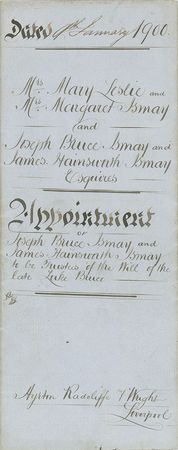 Dated 1st January 1900.
Mrs. Mary Leslie and
Mrs. Margaret Ismay
and
Joseph Bruce Ismay and
James Hainsworth Ismay
Esquires
Appointment
of
Joseph Bruce Ismay and
James Hainsworth Ismay
to be Trustees of the Will of the
late Luke Bruce
Ayrton Radcliffe & Wright
Liverpool